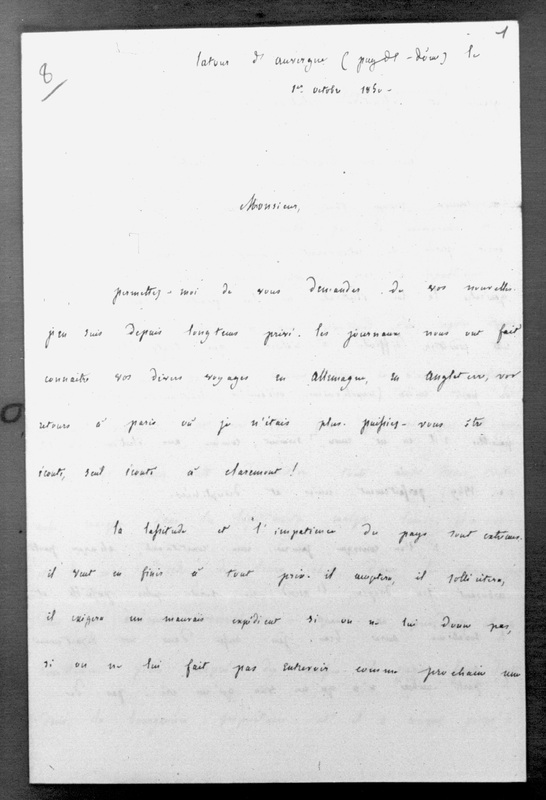 1
8
latour d'auvergne (puy de-dôme) le
1er octobre 1850 -
Monsieur,
permettez-moi de vous demander de vos nouvelles
j'en suis depuis longtems privé. les journaux nous ont fait
connaitre vos divers voyages en allemagne, en angleterre, vos
retours à paris où je n'étais plus. puissiez-vous être
écouté, seul écouté à claremont!
la lassitude et l'impatience du pays sont extrêmes.
il veut en finir à tout prix. il acceptera, il sollicitera,
il exigera un mauvais expédient si on ne lui donne pas,
si on ne lui fait pas entrevoir comme prochain une